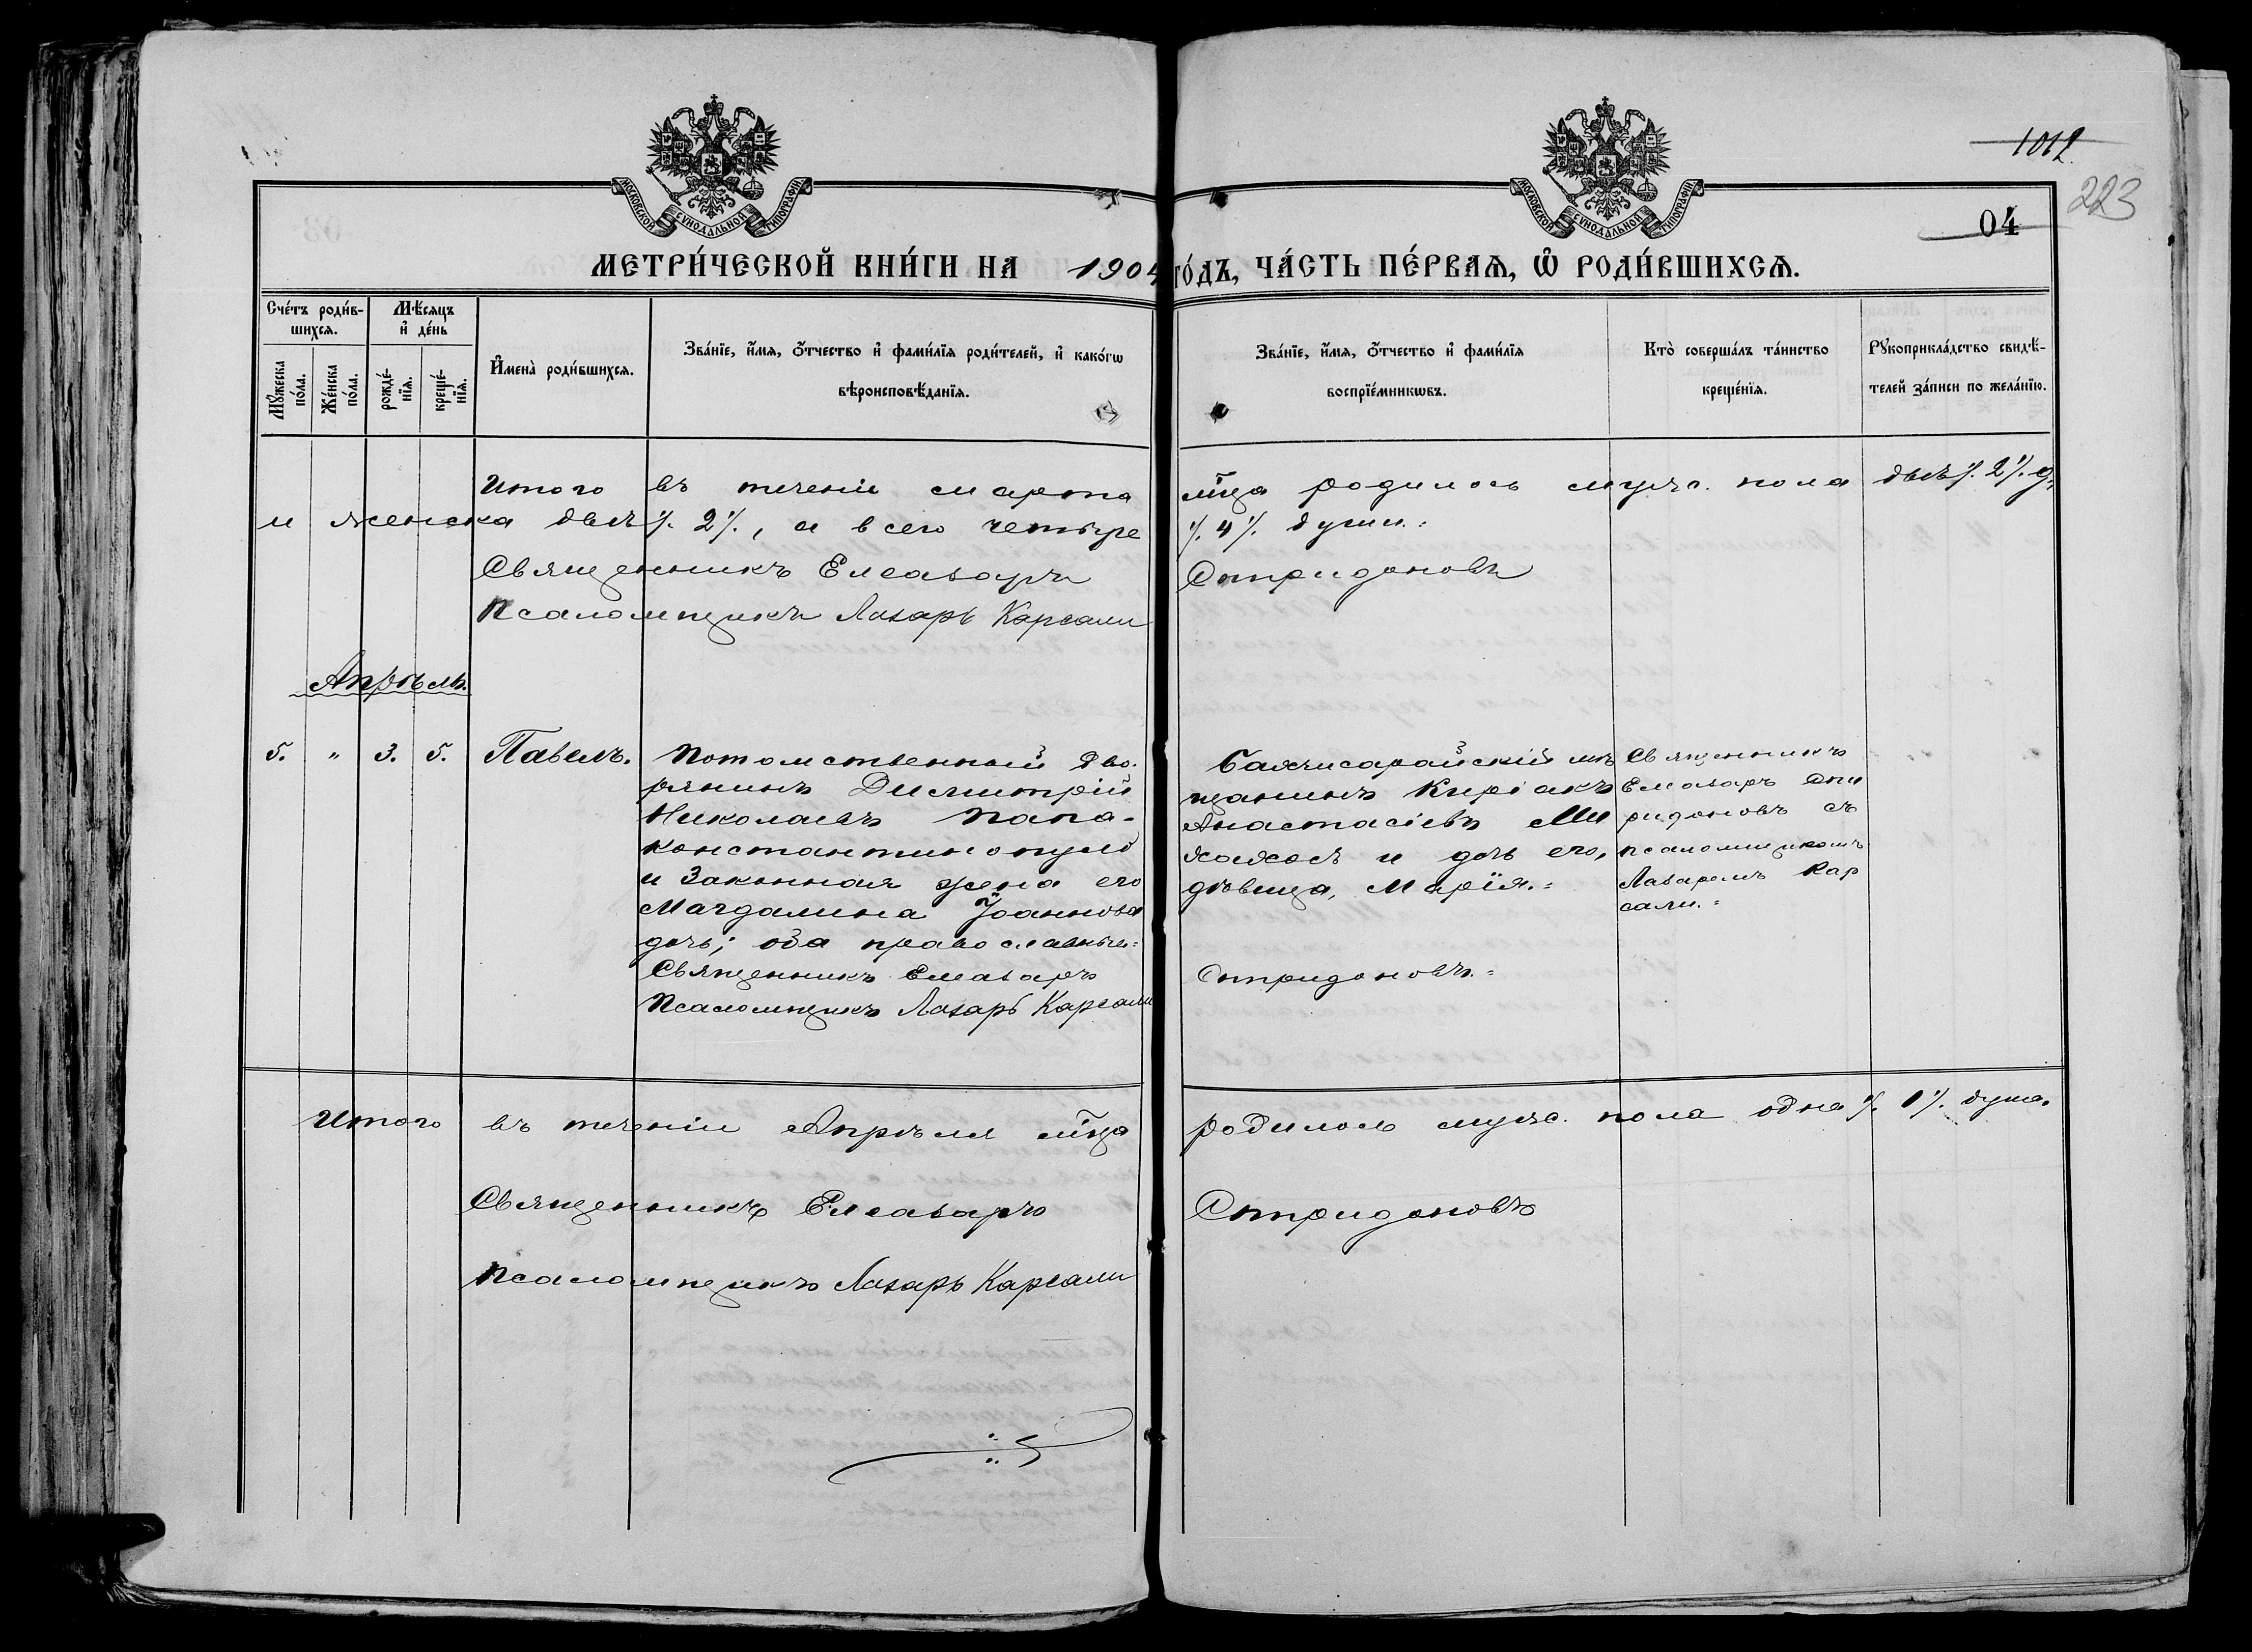 1012
223
04
МОСКОВСКОЙ СУНОДАЛЬНОЙ ТИПОГРАФІИ
МОСКОВСКОЙ СУНОДАЛЬНОЙ ТИПОГРАФІИ
МЕТРИ́ЧЕСКОЙ КНИ́ГИ НА 1904 ГО́ДЪ, ЧА́СТЬ ПЕ́РВАѦ, Ѡ РОДИ́ВШИХСѦ.
Сче́тъ роди́в-
шихсѧ.
Мѣ́сѧцъ
и҆ де́нь
Мꙋ́жеска
по́ла.
Же́нска
по́ла.
рожде́-
нїѧ.
креще́-
нїѧ.
И҆мена̀ роди́вшихсѧ.
Зва́нїе, и҆́мѧ, ѻ҆́тчество и҆ фами́лїѧ роди́телей, и҆ како́гѡ
вѣроисповѣ́данїѧ.
Зва́нїе, и҆́мѧ, ѻ҆́тчество и҆ фами́лїѧ
воспрїе́мникѡвъ.
Кто̀ соверша́лъ та́инство
креще́нїѧ.
Рꙋкоприкла́дство свидѣ́-
телей за́писи по жела́нїю.
Итого въ теченіи марта мца родилось мужс. пола двѣ ./. 2 ./. д.
и женска двѣ ./. 2 ./., а всего четыре ./. 4 ./. души.=
Священникъ Елеазаръ Спиридоновъ
Псаломщикъ Лазарь Карсали
Апрѣль.
5. " 3. 5. Павелъ.
Потомственный дво-
рянинъ Димитрій
Николаевъ Папа-
константинопуло
и законная жена его
Магдалина Іоаннова
дочь; оба православные.=
Священникъ Елеазаръ
Псаломщикъ Лазарь Карсали
Бахчисарайскій мѣ
щанинъ Киріакъ
Анастасіевъ Ми
хаилъ и дочь его,
дѣвица, Марія.=
Спиридоновъ.=
Священникъ
Елеазаръ Спи
ридоновъ съ
псаломщикомъ
Лазаремъ Кар
сали.=
Итого въ теченіи Апрѣля мца родилось мужс. пола одна ./. 1 ./. душа.
Священникъ Елеазаръ Спиридоновъ
Псаломщикъ Лазарь Карсали